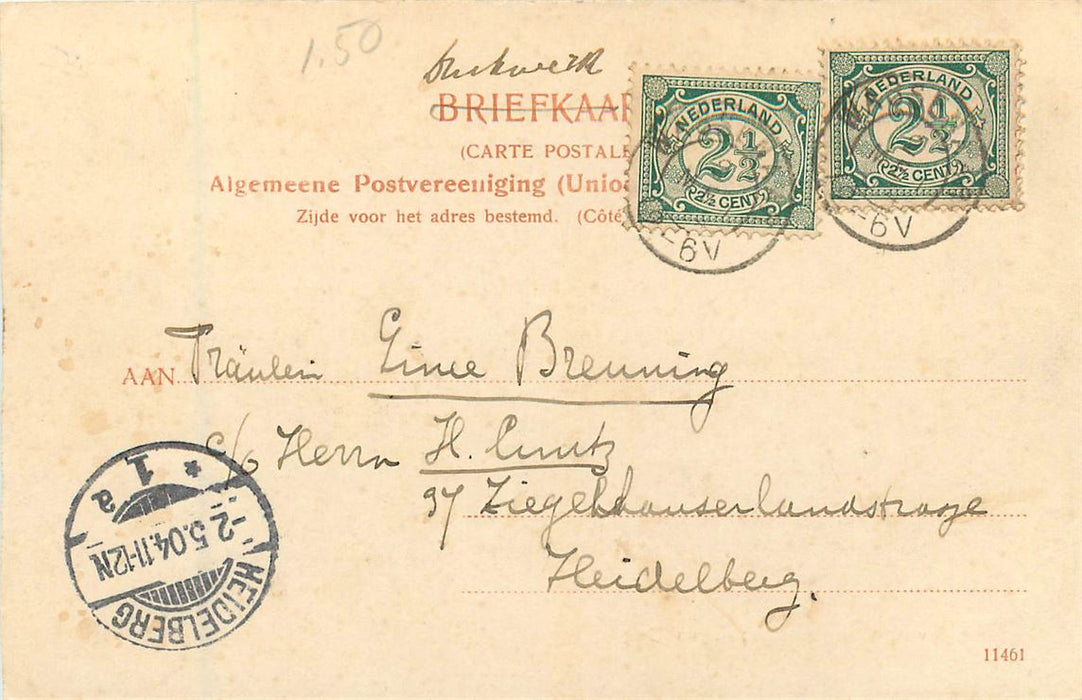 1.50
Drukwerk
BRIEFKAAR
(CARTE POSTALE
Algemeene Postvereeniging (Unio
Zijde voor het adres bestemd. (Côté
NEDERLAND
2½
2½ CENT
6V
NEDERLAND
2½
2½ CENT
6V
AAN Fräulein Breuning
c/o Herrn H. Cuntz
97 Ziegelhauserlandstrasse
Heidelberg.
HEIDELBERG
* 1 a
-2.5.04.11-12N
11461